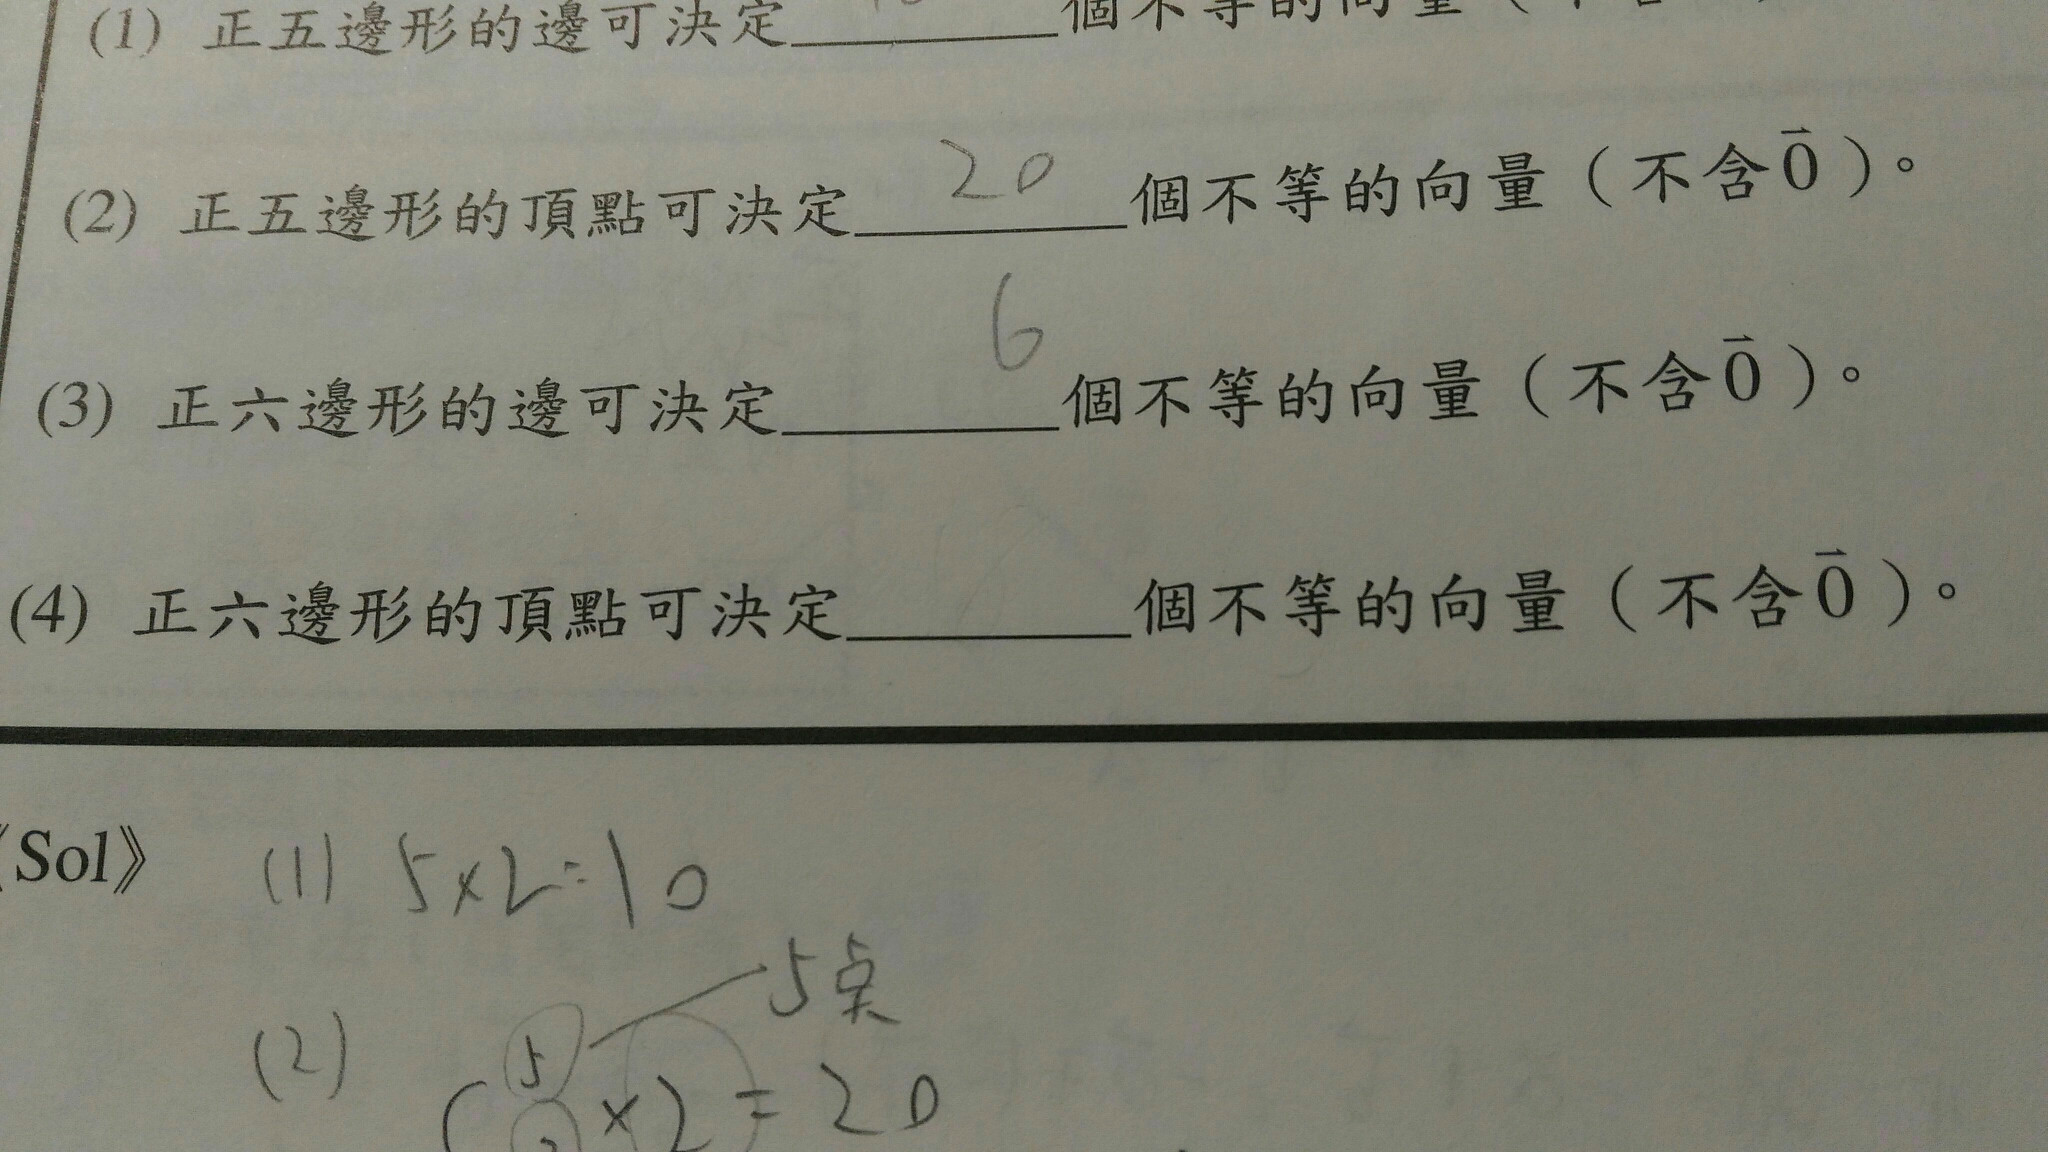 (1) 正五邊形的邊可決定______個不等的向量(不含
(2) 正五邊形的頂點可決定 20 個不等的向量(不含0⃗)。
(3) 正六邊形的邊可決定 6 個不等的向量(不含0⃗)。
(4) 正六邊形的頂點可決定______個不等的向量(不含0⃗)。
《Sol》 (1) 5×2=10
5点
(2) C 5 2 ×2=20